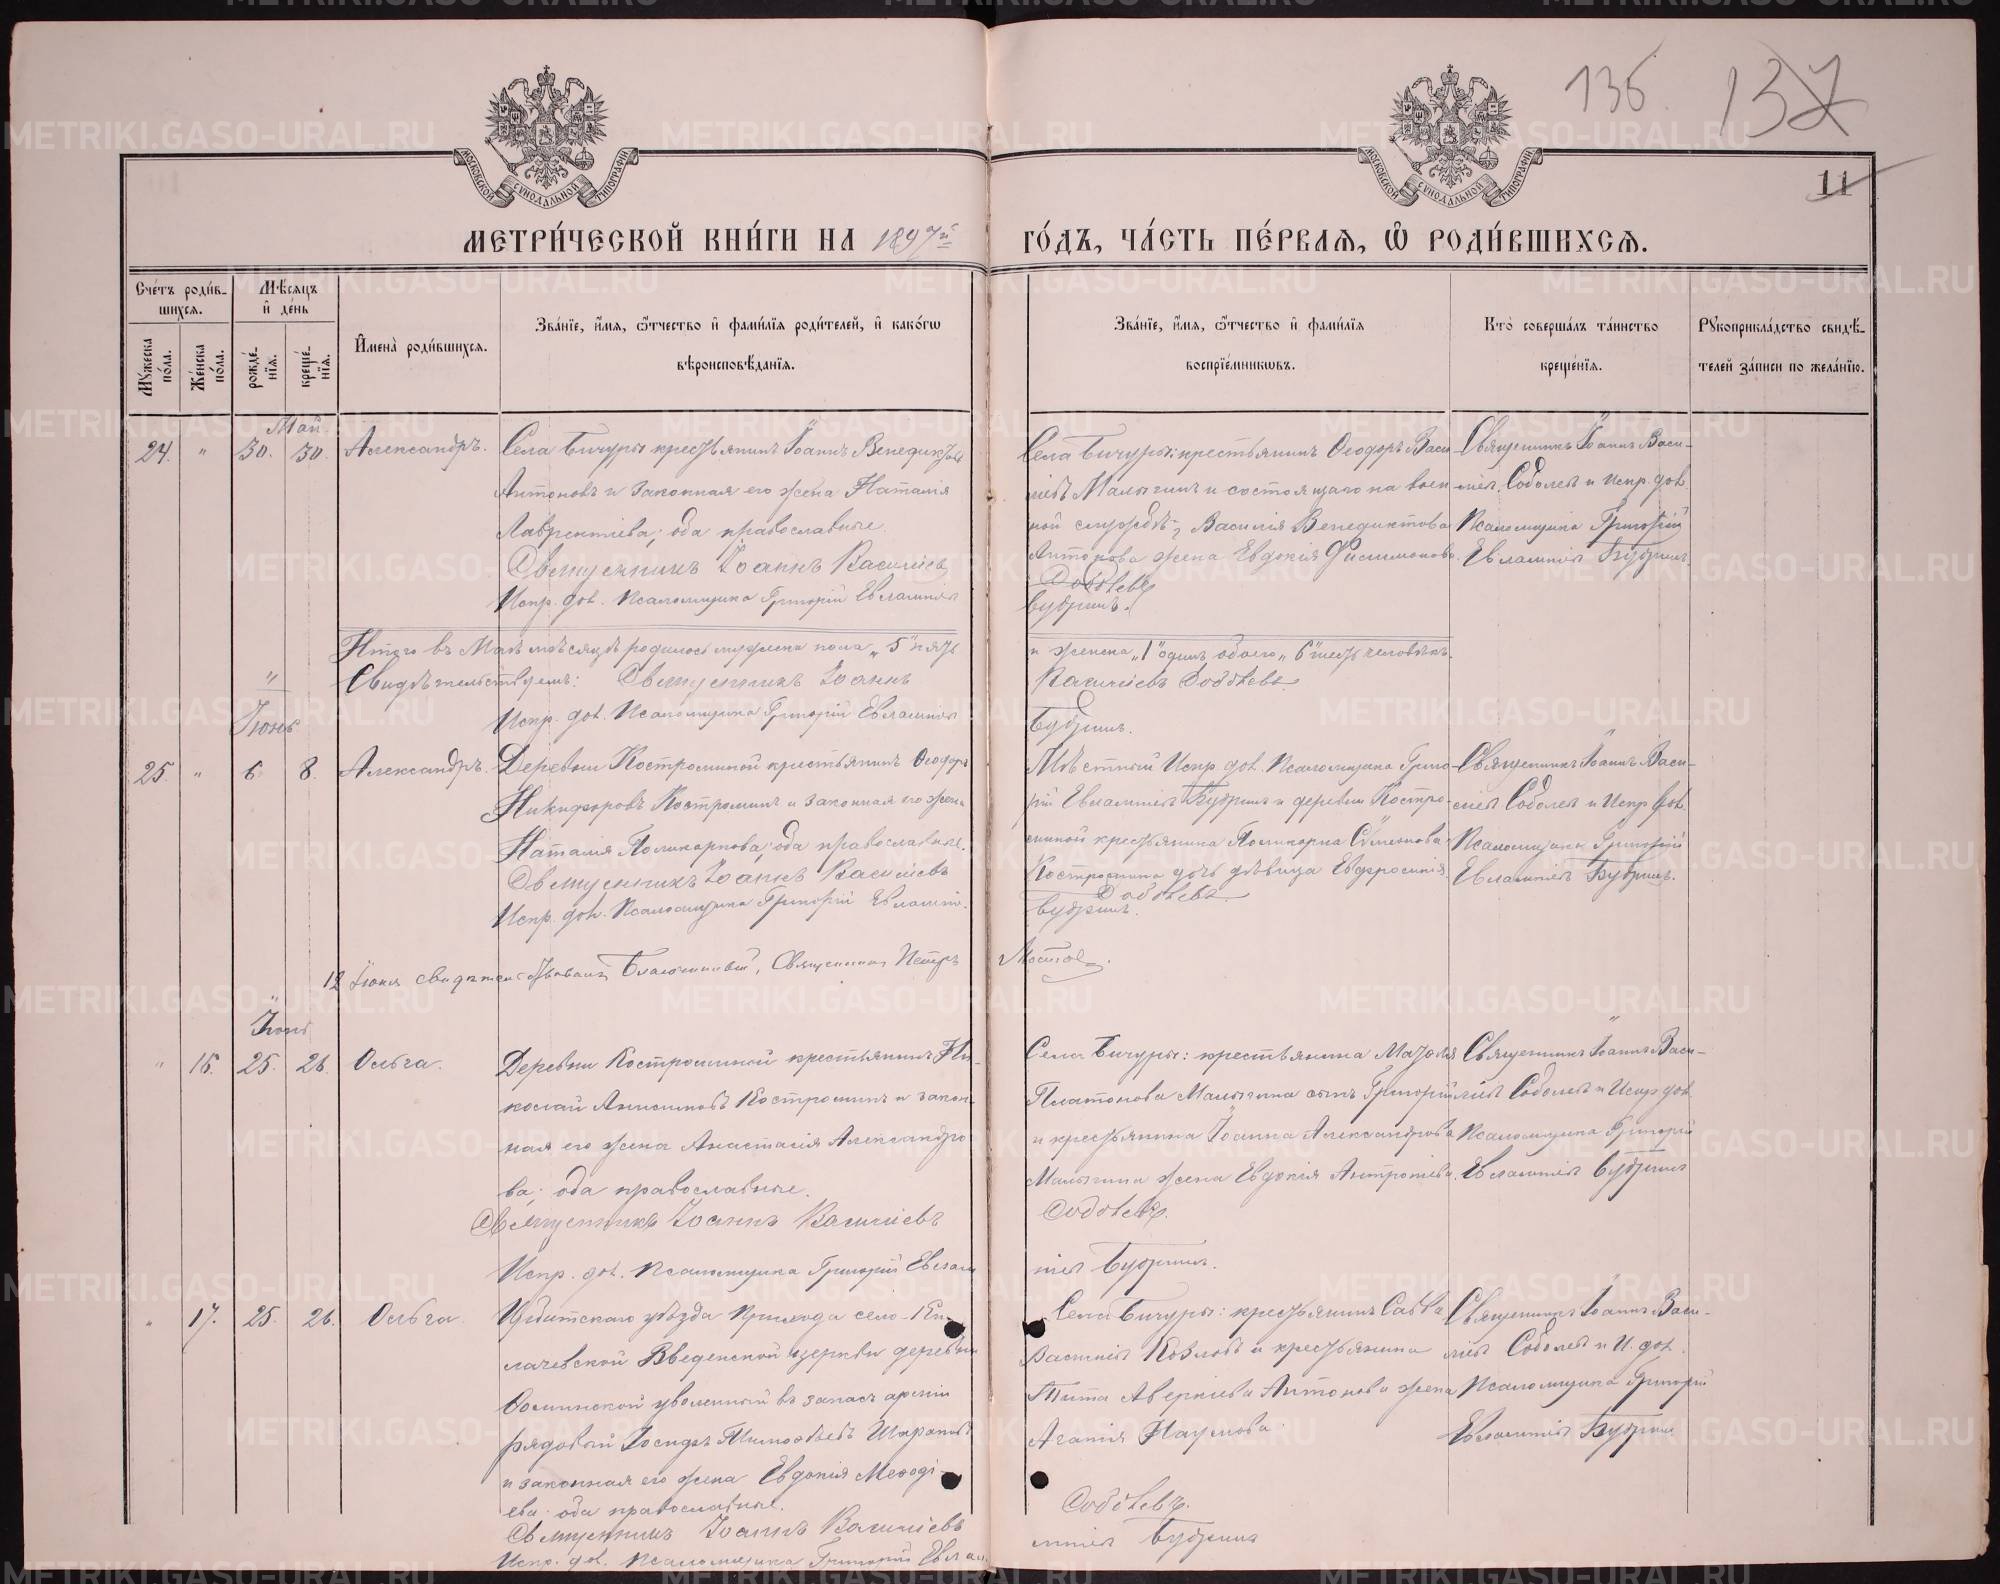 136 137
11
МОСКОВСКОЙ СУНОДАЛЬНОЙ ТИПОГРАФІИ
МОСКОВСКОЙ СУНОДАЛЬНОЙ ТИПОГРАФІИ
МЕТРИ́ЧЕСКОЙ КНИ́ГИ НА 1897й ГО́ДЪ, ЧА́СТЬ ПЕ́РВАЯ, Ѽ РОДИ́ВШИХСЯ.
Сче́тъ роди́вшихся.
Мꙋ́жеска по́ла.
Же́нска по́ла.
Мѣ́сяцъ и҆ де́нь
рожде́нїя.
креще́нїя.
И҆мена̀ роди́вшихся.
Зва́нїе, и҆́мя, ѻ҆́тчество и҆ фами́лїя роди́телей, и҆ како́гѡ вѣроисповѣ́данїя.
Зва́нїе, и҆́мя, ѻ҆́тчество и҆ фами́лїя воспрїе́мникѡвъ.
Кто̀ соверша́лъ та́инство креще́нїя.
Рꙋкоприкла́дство свидѣ́телей за́писи по жела́нїю.
Май
24. " 30. 30. Александръ.
Села Бичуры крестьянинъ Іоаннъ Венедиктов
Антоновъ и законная его жена Наталія
Лаврентіева; оба православные.
Священникъ Іоаннъ Василіевъ
Испр. дол. Псаломщика Григорій Евлампіев
Села Бичуры: крестьянинъ Ѳеодоръ Васи-
ліевъ Малыгинъ и состоящаго на воен-
ной службѣ Василія Венедиктова
Антонова жена Евдокія Филимонова.
Соболевъ
Бубринъ.
Священникъ Іоаннъ Васи-
ліев Соболев и испр. дол.
Псаломщика Григорій
Евлампіев Бубринъ.
Итого въ Маѣ мѣсяцѣ родилось мужеска пола „5" пять
и женска „1" одинъ обоего „6" шесть человѣкъ.
Свидѣтельствуемъ: Священникъ Іоаннъ
Василіевъ Соболевъ.
Испр. дол. Псаломщика Григорій Евлампіев
Бубринъ.
Іюнь
25. " 6 8. Александръ.
Деревни Костроминой крестьянинъ Ѳеодоръ
Никифоровъ Костроминъ и законная его жена
Наталія Поликарпова; оба православные.
Священникъ Іоаннъ Василіевъ
Испр. дол. Псаломщика Григорій Евлампіев
Мѣстный Испр. дол. Псаломщика Григо-
рій Евлампіев Бубринъ и деревни Костро-
миной крестьянина Поликарпа Сѵмеонова
Костромина дочь дѣвица Евфросинія.
Соболевъ
Бубринъ.
Священникъ Іоаннъ Васи-
ліев Соболев и Испр. дол.
Псаломщика Григорій
Евлампіев Бубринъ.
12 Іюня свидѣтельствовалъ Благочинный, Священникъ Петръ
Іюнь
" 16. 25. 26. Ольга.
Деревни Костроминой крестьянинъ Ни-
колай Анисимовъ Костроминъ и закон-
ная его жена Анастасія Александро-
ва; оба православные.
Священникъ Іоаннъ Василіевъ
Испр. дол. Псаломщика Григорій Евлам
Села Бичуры: крестьянина
Платонова Малыгина сынъ Григорій
и крестьянина Іоанна Александрова
Малыгина жена Евдокія Антропіева.
Соболевъ.
піев Бубринъ.
Священникъ Іоаннъ Васи-
ліев Соболев и Испр. дол.
Псаломщика Григорій
Евлампіев Бубринъ
" 17. 25. 26. Ольга.
Ирбитскаго уѣзда прихода село-Ки-
лачевской Введенской церкви деревни
Ѳоминской уволенный въ запасъ арміи
рядовый Іосифъ Тимоѳеевъ Шараповъ
и законная его жена Евдокія Меѳоді-
ева; оба православные.
Священникъ Іоаннъ Василіевъ
Испр. дол. Псаломщика Григорій Евлам
Села Бичуры: крестьянинъ Савва
Василіев Козловъ и крестьянина
Тита Аверкіева Антонова жена
Агапія Наумова.
Соболевъ.
піев Бубринъ
Священникъ Іоаннъ Васи-
ліев Соболев и И. дол.
Псаломщика Григорій
Евлампіев Бубрин